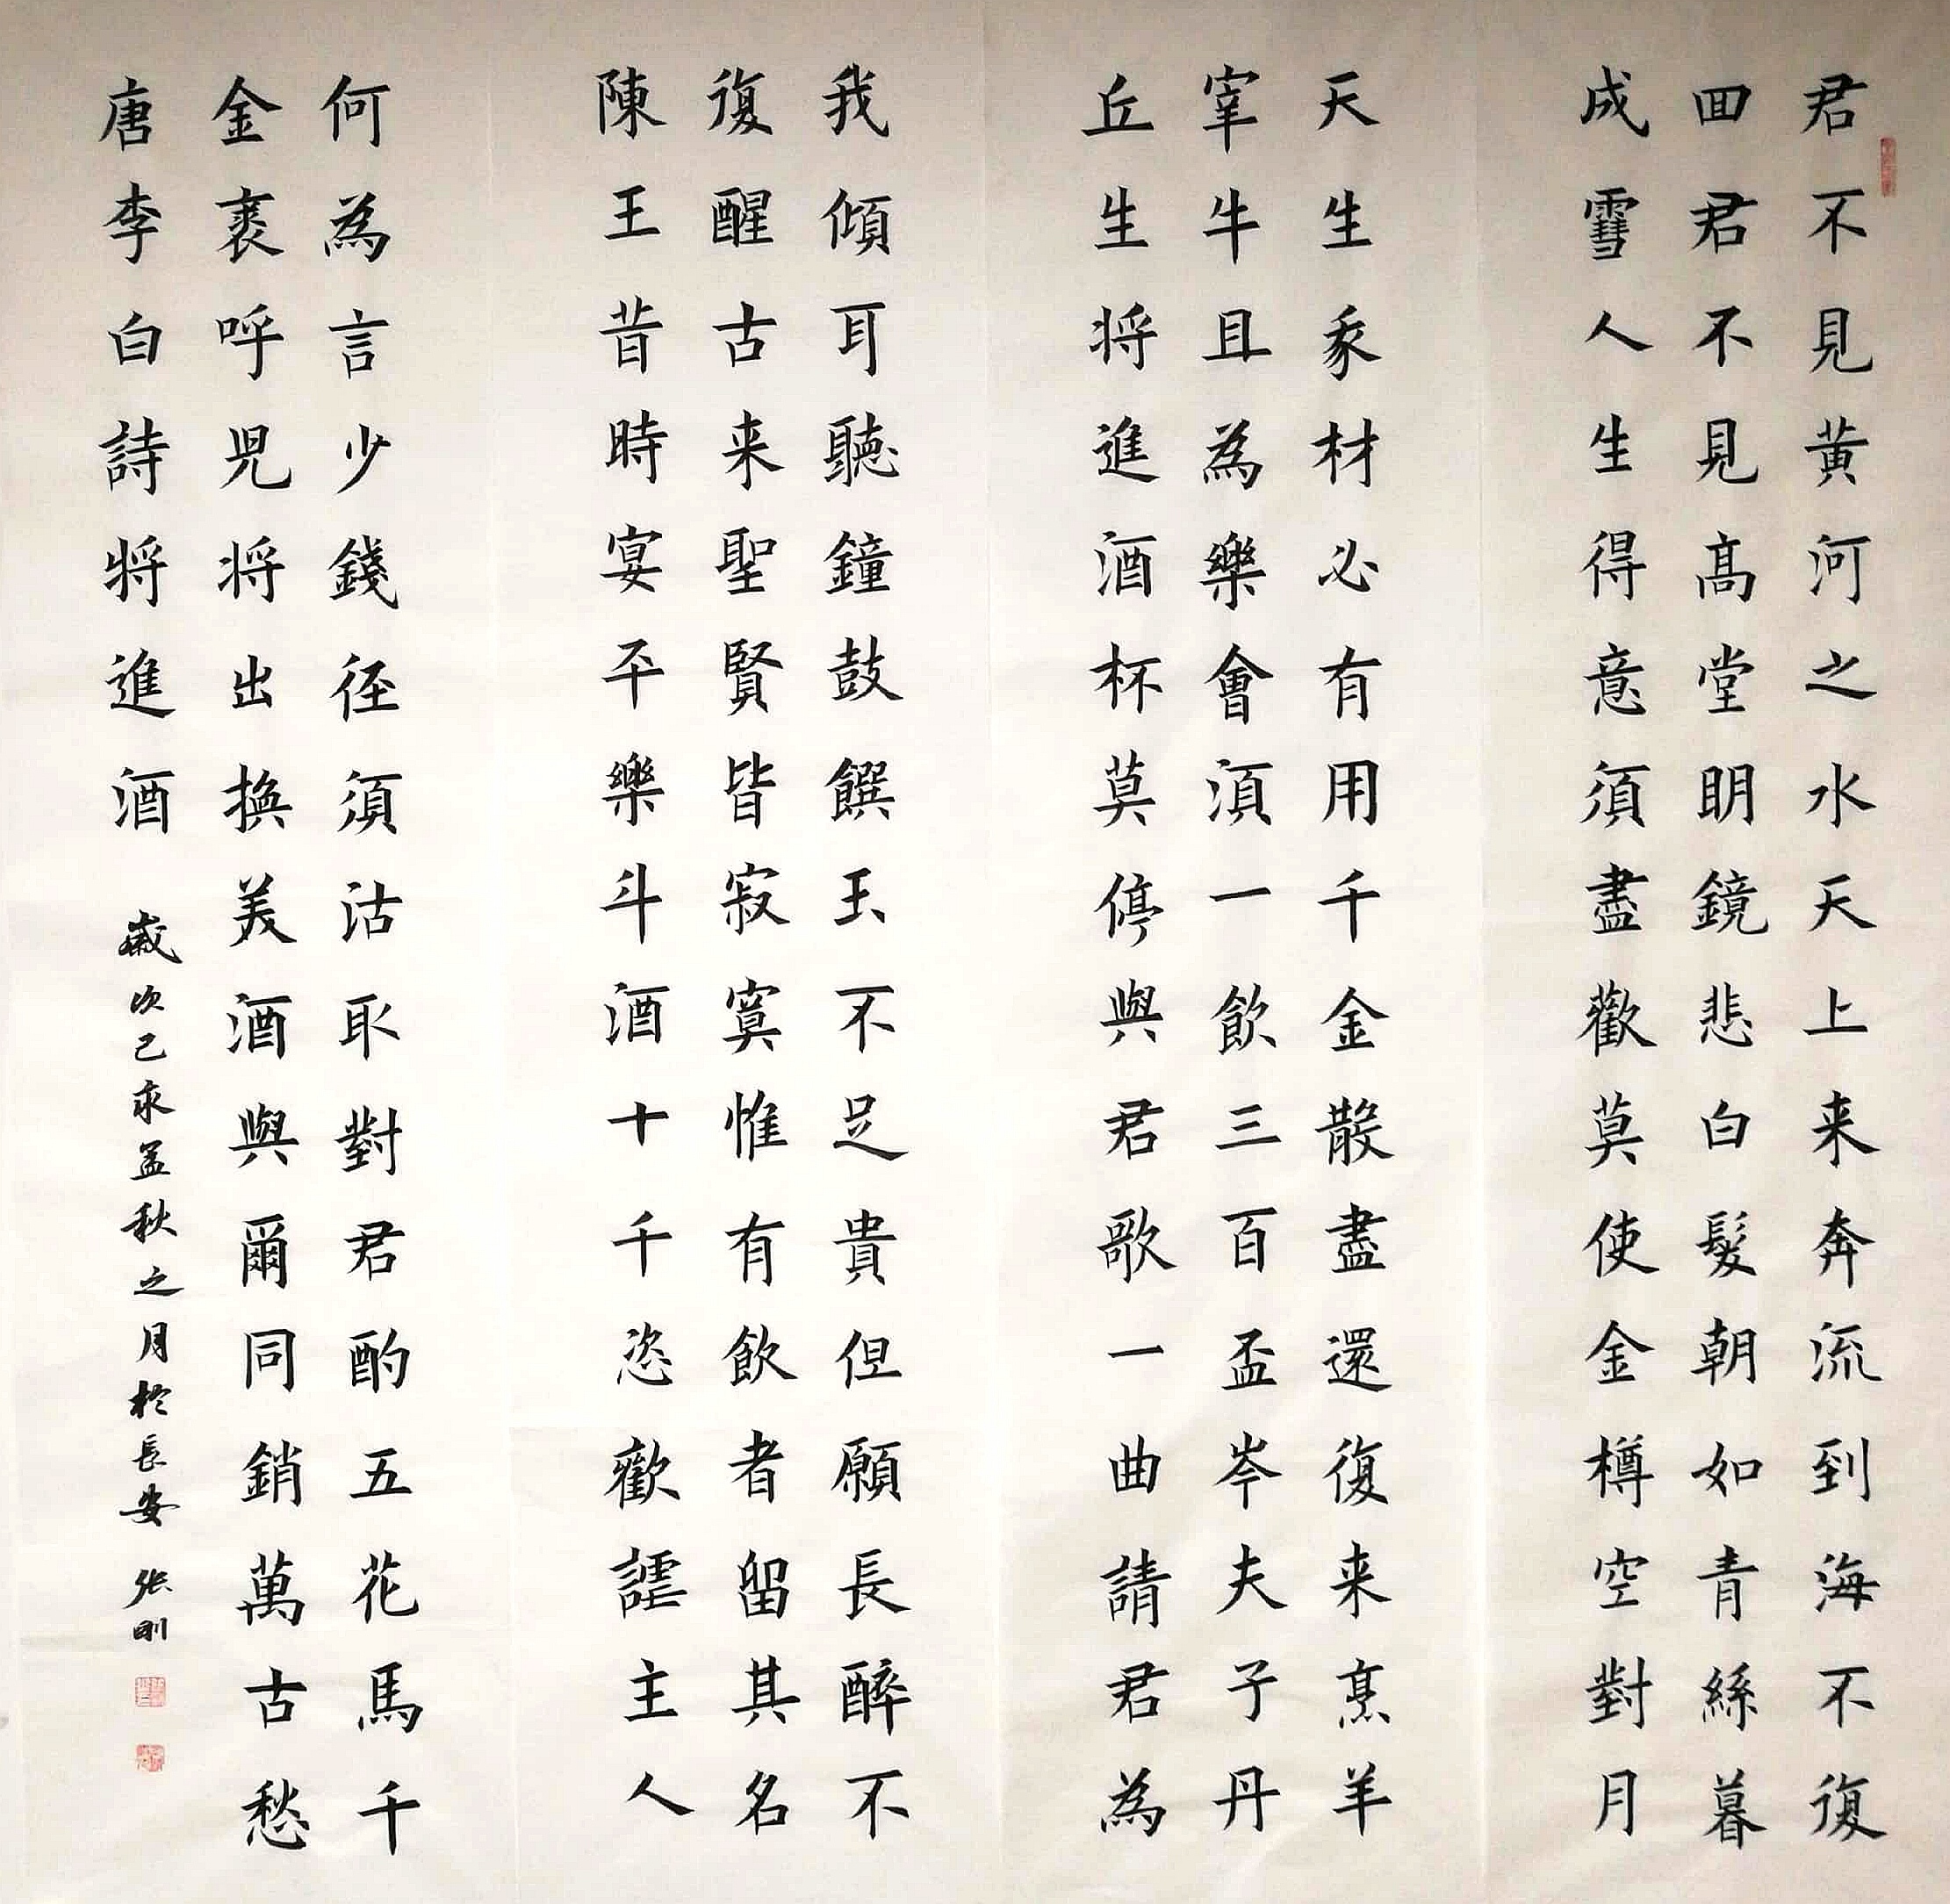 君不見黃河之水天上来奔流到海不復
囬君不見髙堂眀鏡悲白髮朝如青絲暮
成雪人生得意須盡歡莫使金樽空對月
天生我材必有用千金散盡還復来烹羊
宰牛且為樂會須一飲三百盃岑夫子丹
丘生将進酒杯莫停與君歌一曲請君為
我傾耳聽鐘鼓饌玉不足貴但願長醉不
復醒古来聖賢皆寂寞惟有飲者留其名
陳王昔時宴平樂斗酒十千恣歡謔主人
何為言少錢径須沽取對君酌五花馬千
金裘呼児将出換美酒與爾同銷萬古愁
唐李白詩将進酒 歲次己亥孟秋之月於長安 張剛